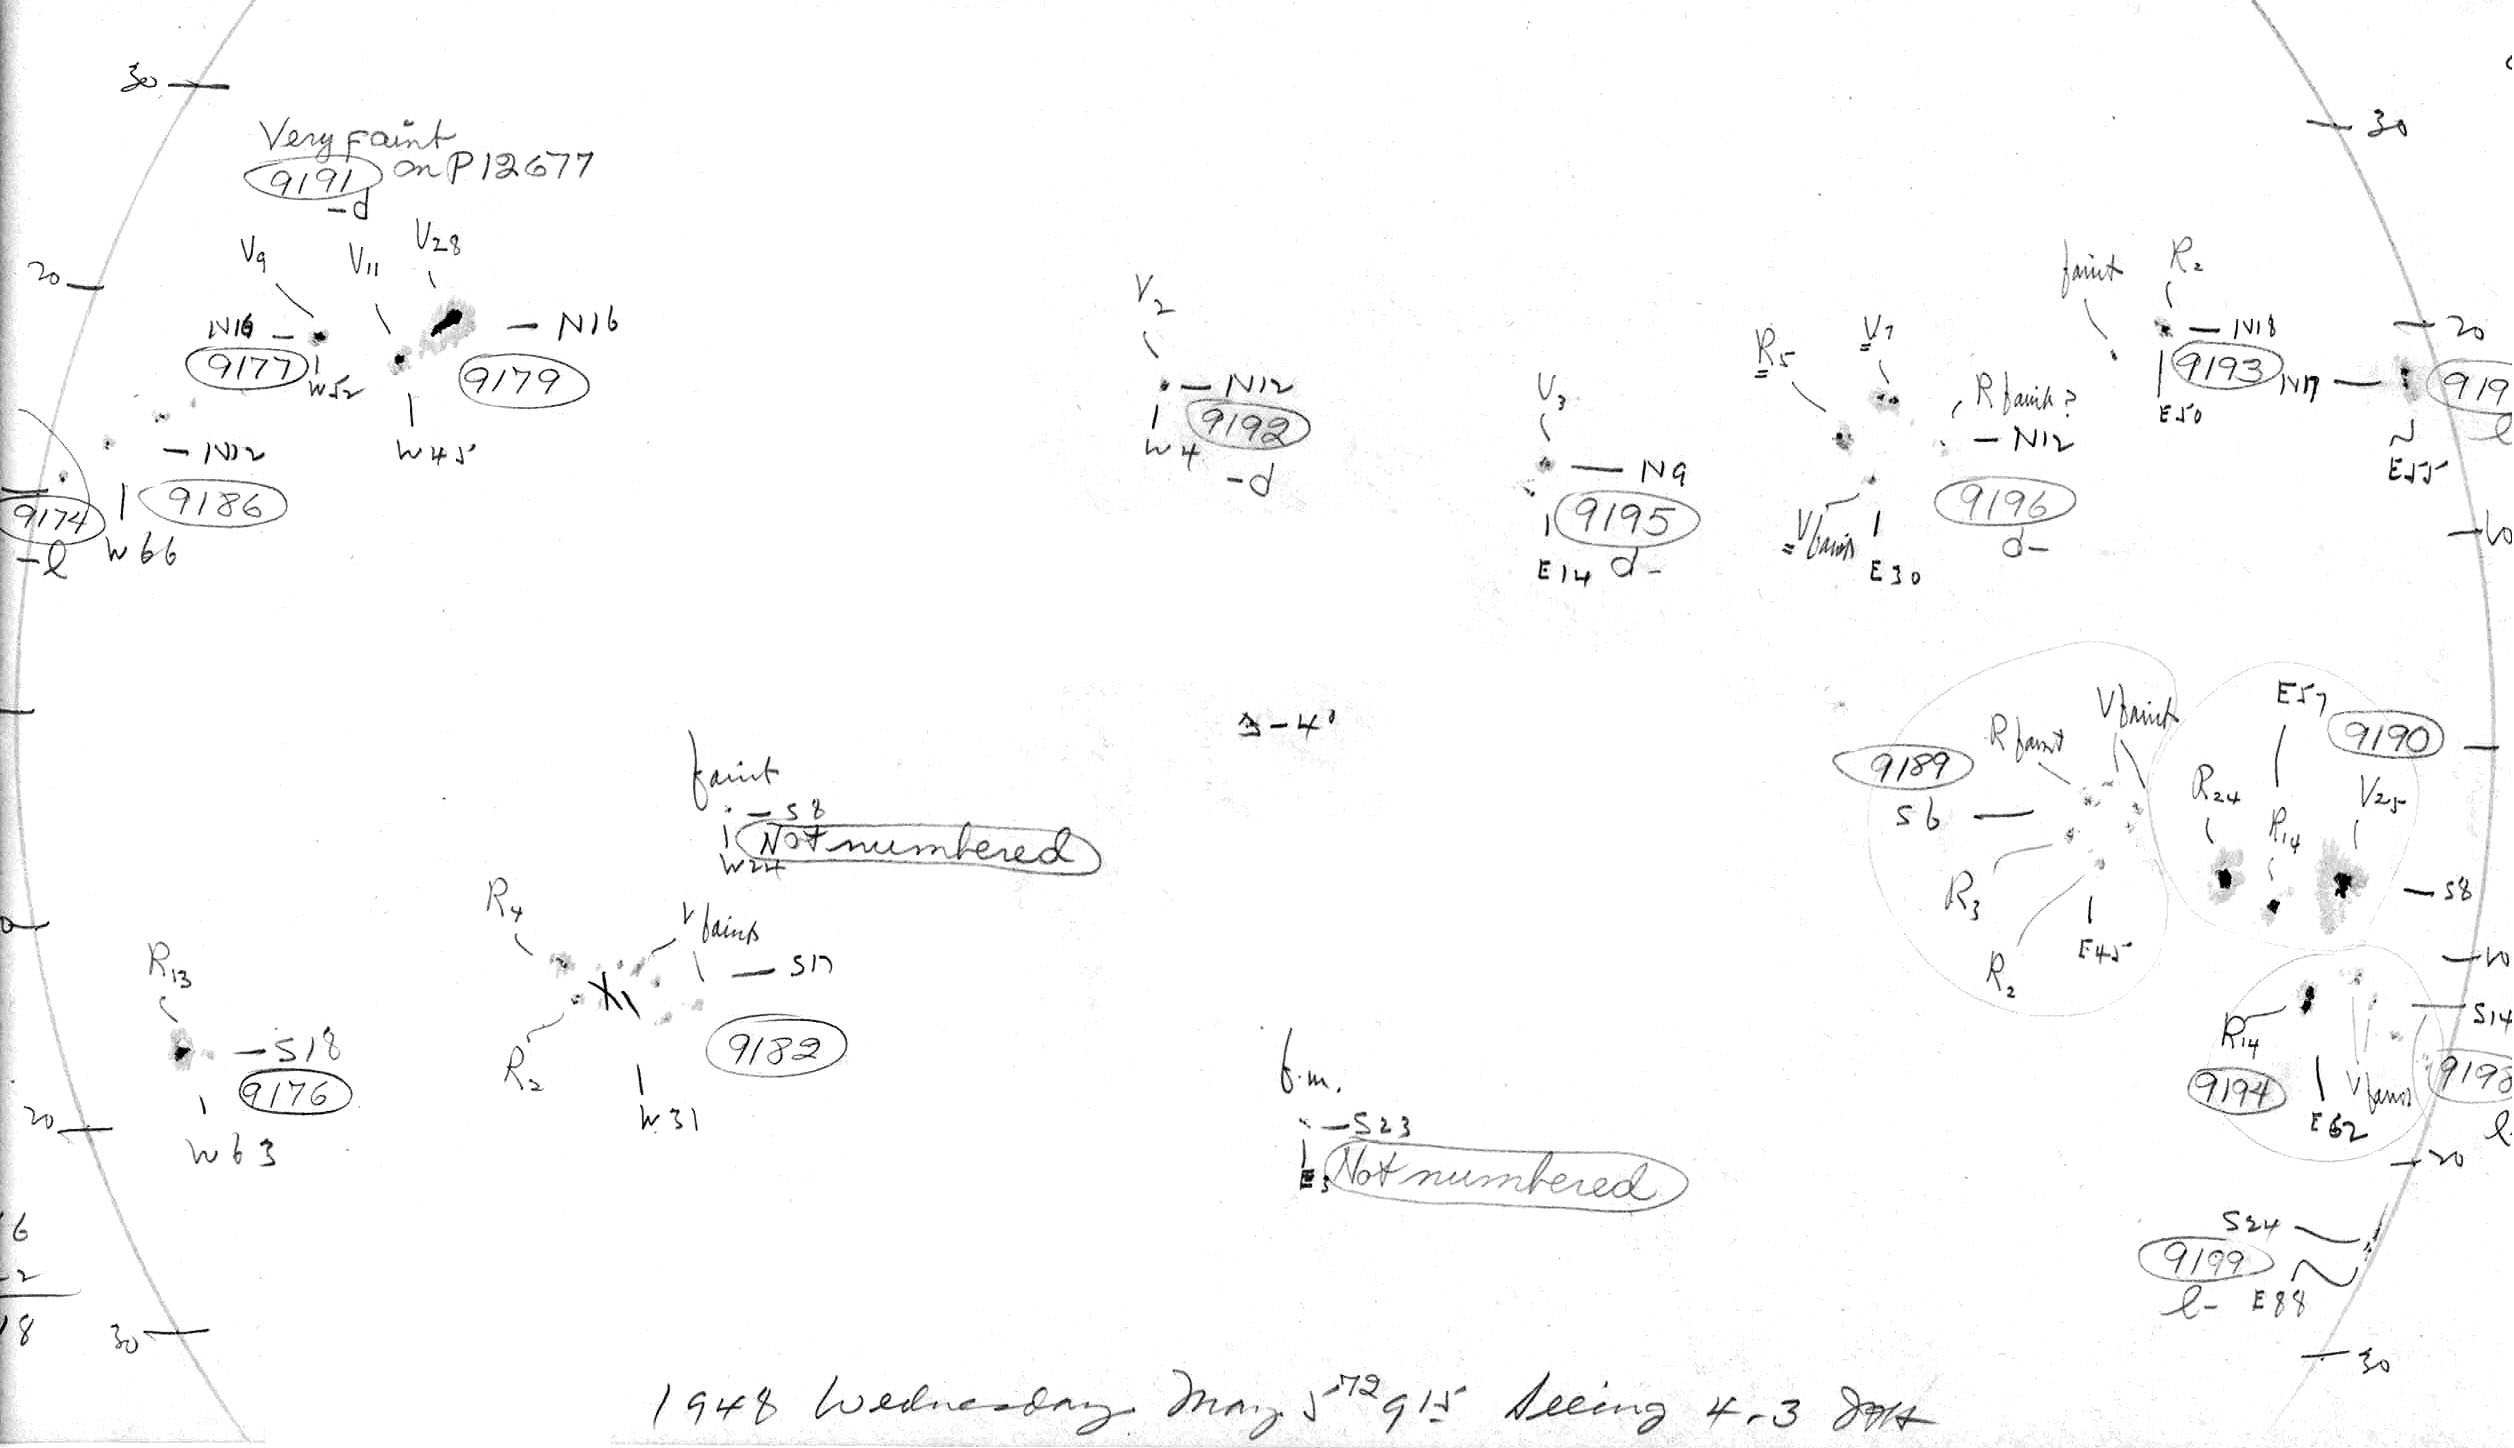 30
30
Very faint
on P12677
9191
-d
V9
V11
V28
20
N16
N16
9177
W52
9179
W45
N12
9186
9174
-l
W66
V2
N12
9192
W4
-d
V3
N9
9195
E14
d-
R5
V7
R faint?
N12
9196
V faint
E30
d-
faint
R2
N18
9193
E50
20
N17
919
l
E55
10
3-4°
faint
S8
Not numbered
W24
R4
V faint
S17
R2
9182
W31
R13
S18
9176
W63
20
f.m.
S23
Not numbered
E3
9189
R faint
V faint
S6
R3
R2
E45
E57
9190
R24
R14
V25
S8
10
S14
R14
9194
E62
V faint
9198
l-
20
S24
9199
l-
E88
30
6
-2
18
30
1948 Wednesday May 5 72 9 15 Seeing 4-3